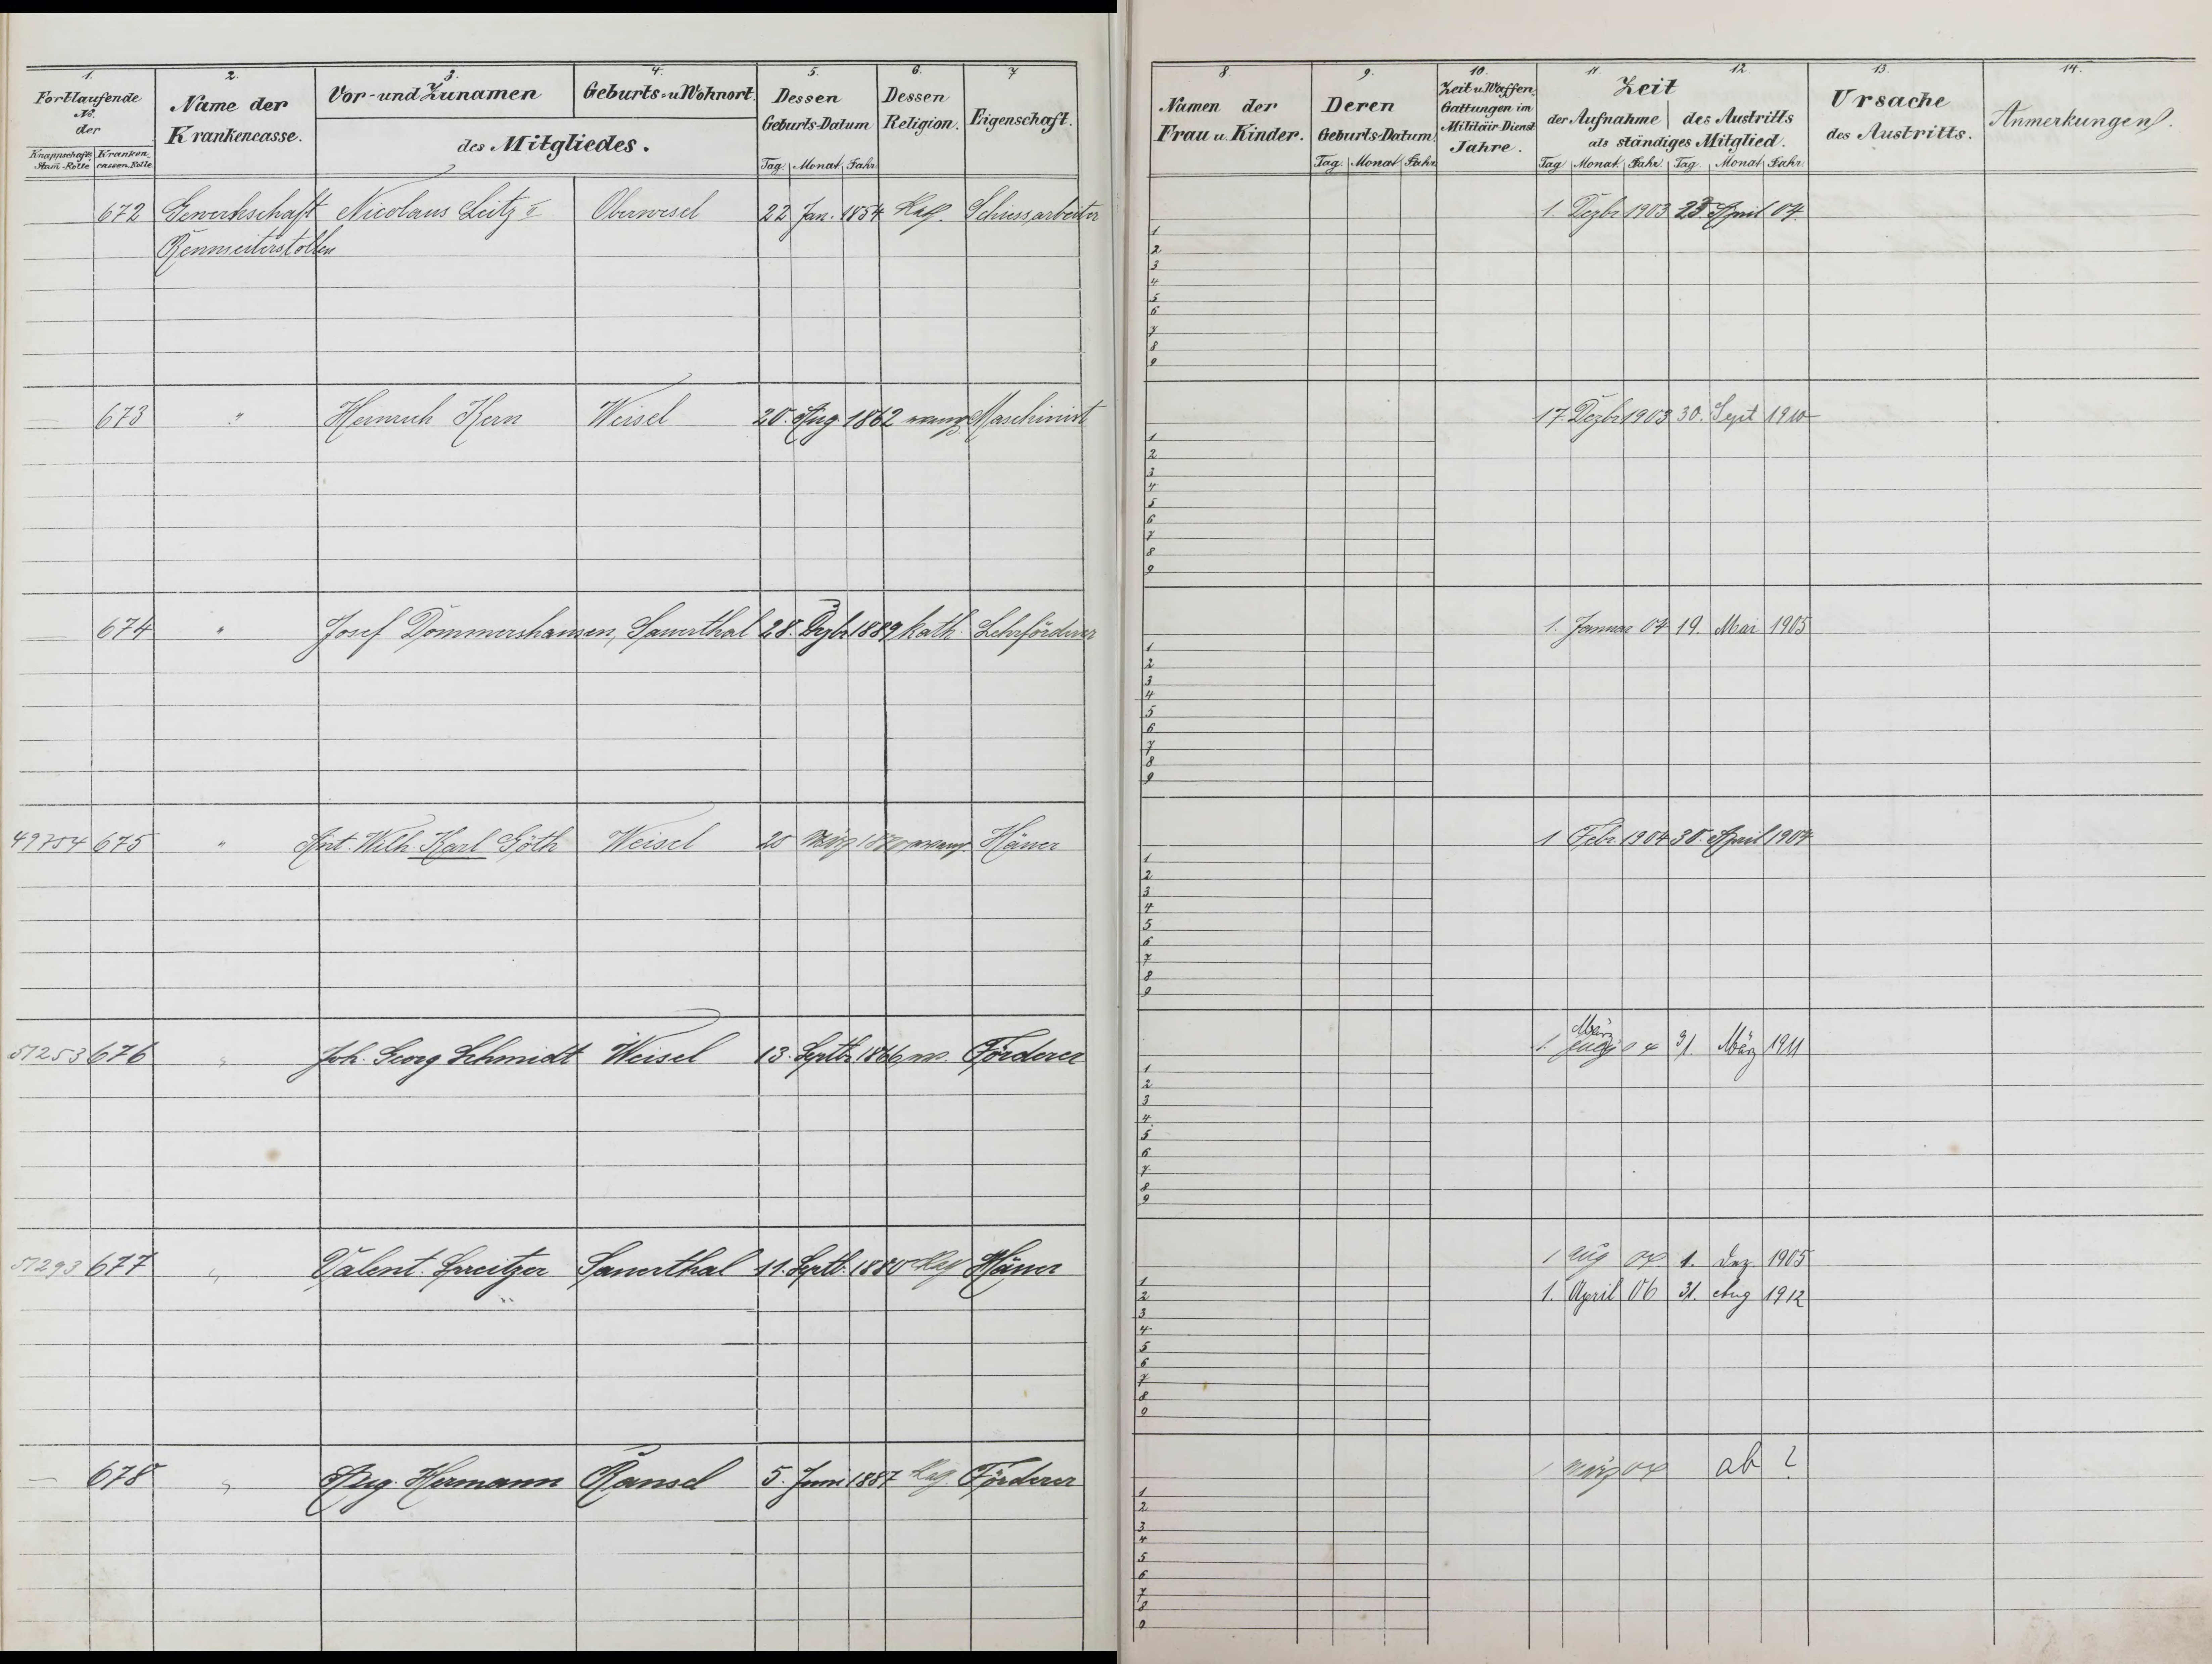 1. 2. 3. 4. 5. 6. 7
Fortlaufende No. der
Knappschafts Stam-Rolle Kranken-cassen-Rolle
Name der Krankencasse.
Vor- und Zunamen
Geburts- u Wohnort
des Mitgliedes.
Dessen Geburts-Datum
Tag. Monat Jahr.
Dessen Religion.
Eigenschaft.
8. 9. 10. 11. 12. 13. 14.
Namen der Frau u. Kinder.
Deren Geburts-Datum.
Tag. Monat Jahr.
Zeit u. Waffen-Gattungen im Militair-Dienst Jahre.
Zeit
der Aufnahme des Austritts
als ständiges Mitglied.
Tag Monat Jahr. Tag. Monat Jahr.
Ursache des Austritts.
Anmerkungen.
672 Gewerkschaft Nicolaus Leitz II Oberwesel 22 Jan. 1854 Kath. Schiessarbeiter 1. Dezbr 1903 23 April 04.
Rennseiterstollen
1
2
3
4
5
6
7
8
9
— 673 " Heinrich Kern Weisel 20. Aug. 1862 evang Maschinist 17. Dezbr 1903 30. Sept 1910
1
2
3
4
5
6
7
8
9
— 674 " Josef Dommershausen, Sauerthal 28. Dzbr 1889 kath. Lehrförderer 1. Januar 04 19. Mai 1905
1
2
3
4
5
6
7
8
9
49754 675 " Ant. Wilh. Karl Göth Weisel 20 März evang. Häuer 1 Febr. 1904 30. April 1904
1
2
3
4
5
6
7
8
9
März
51253 676 " Joh. Georg Schmidt Weisel 13. Septbr. 1866 ev. Förderer 1. 04 31. März 1911
1
2
3
4
5
6
7
8
9
51293 677 " Valent. Spreitzer Sauerthal 11. Septb. 1880 Kath Häuer 1 Aug 04 1. Dez. 1905
" 1. April 06 31. Aug 1912
1
2
3
4
5
6
7
8
9
— 678 " Aug. Hermann Ransel 5. Juni 1887 Kath. Förderer 1 März 04 ab ?
1
2
3
4
5
6
7
8
9